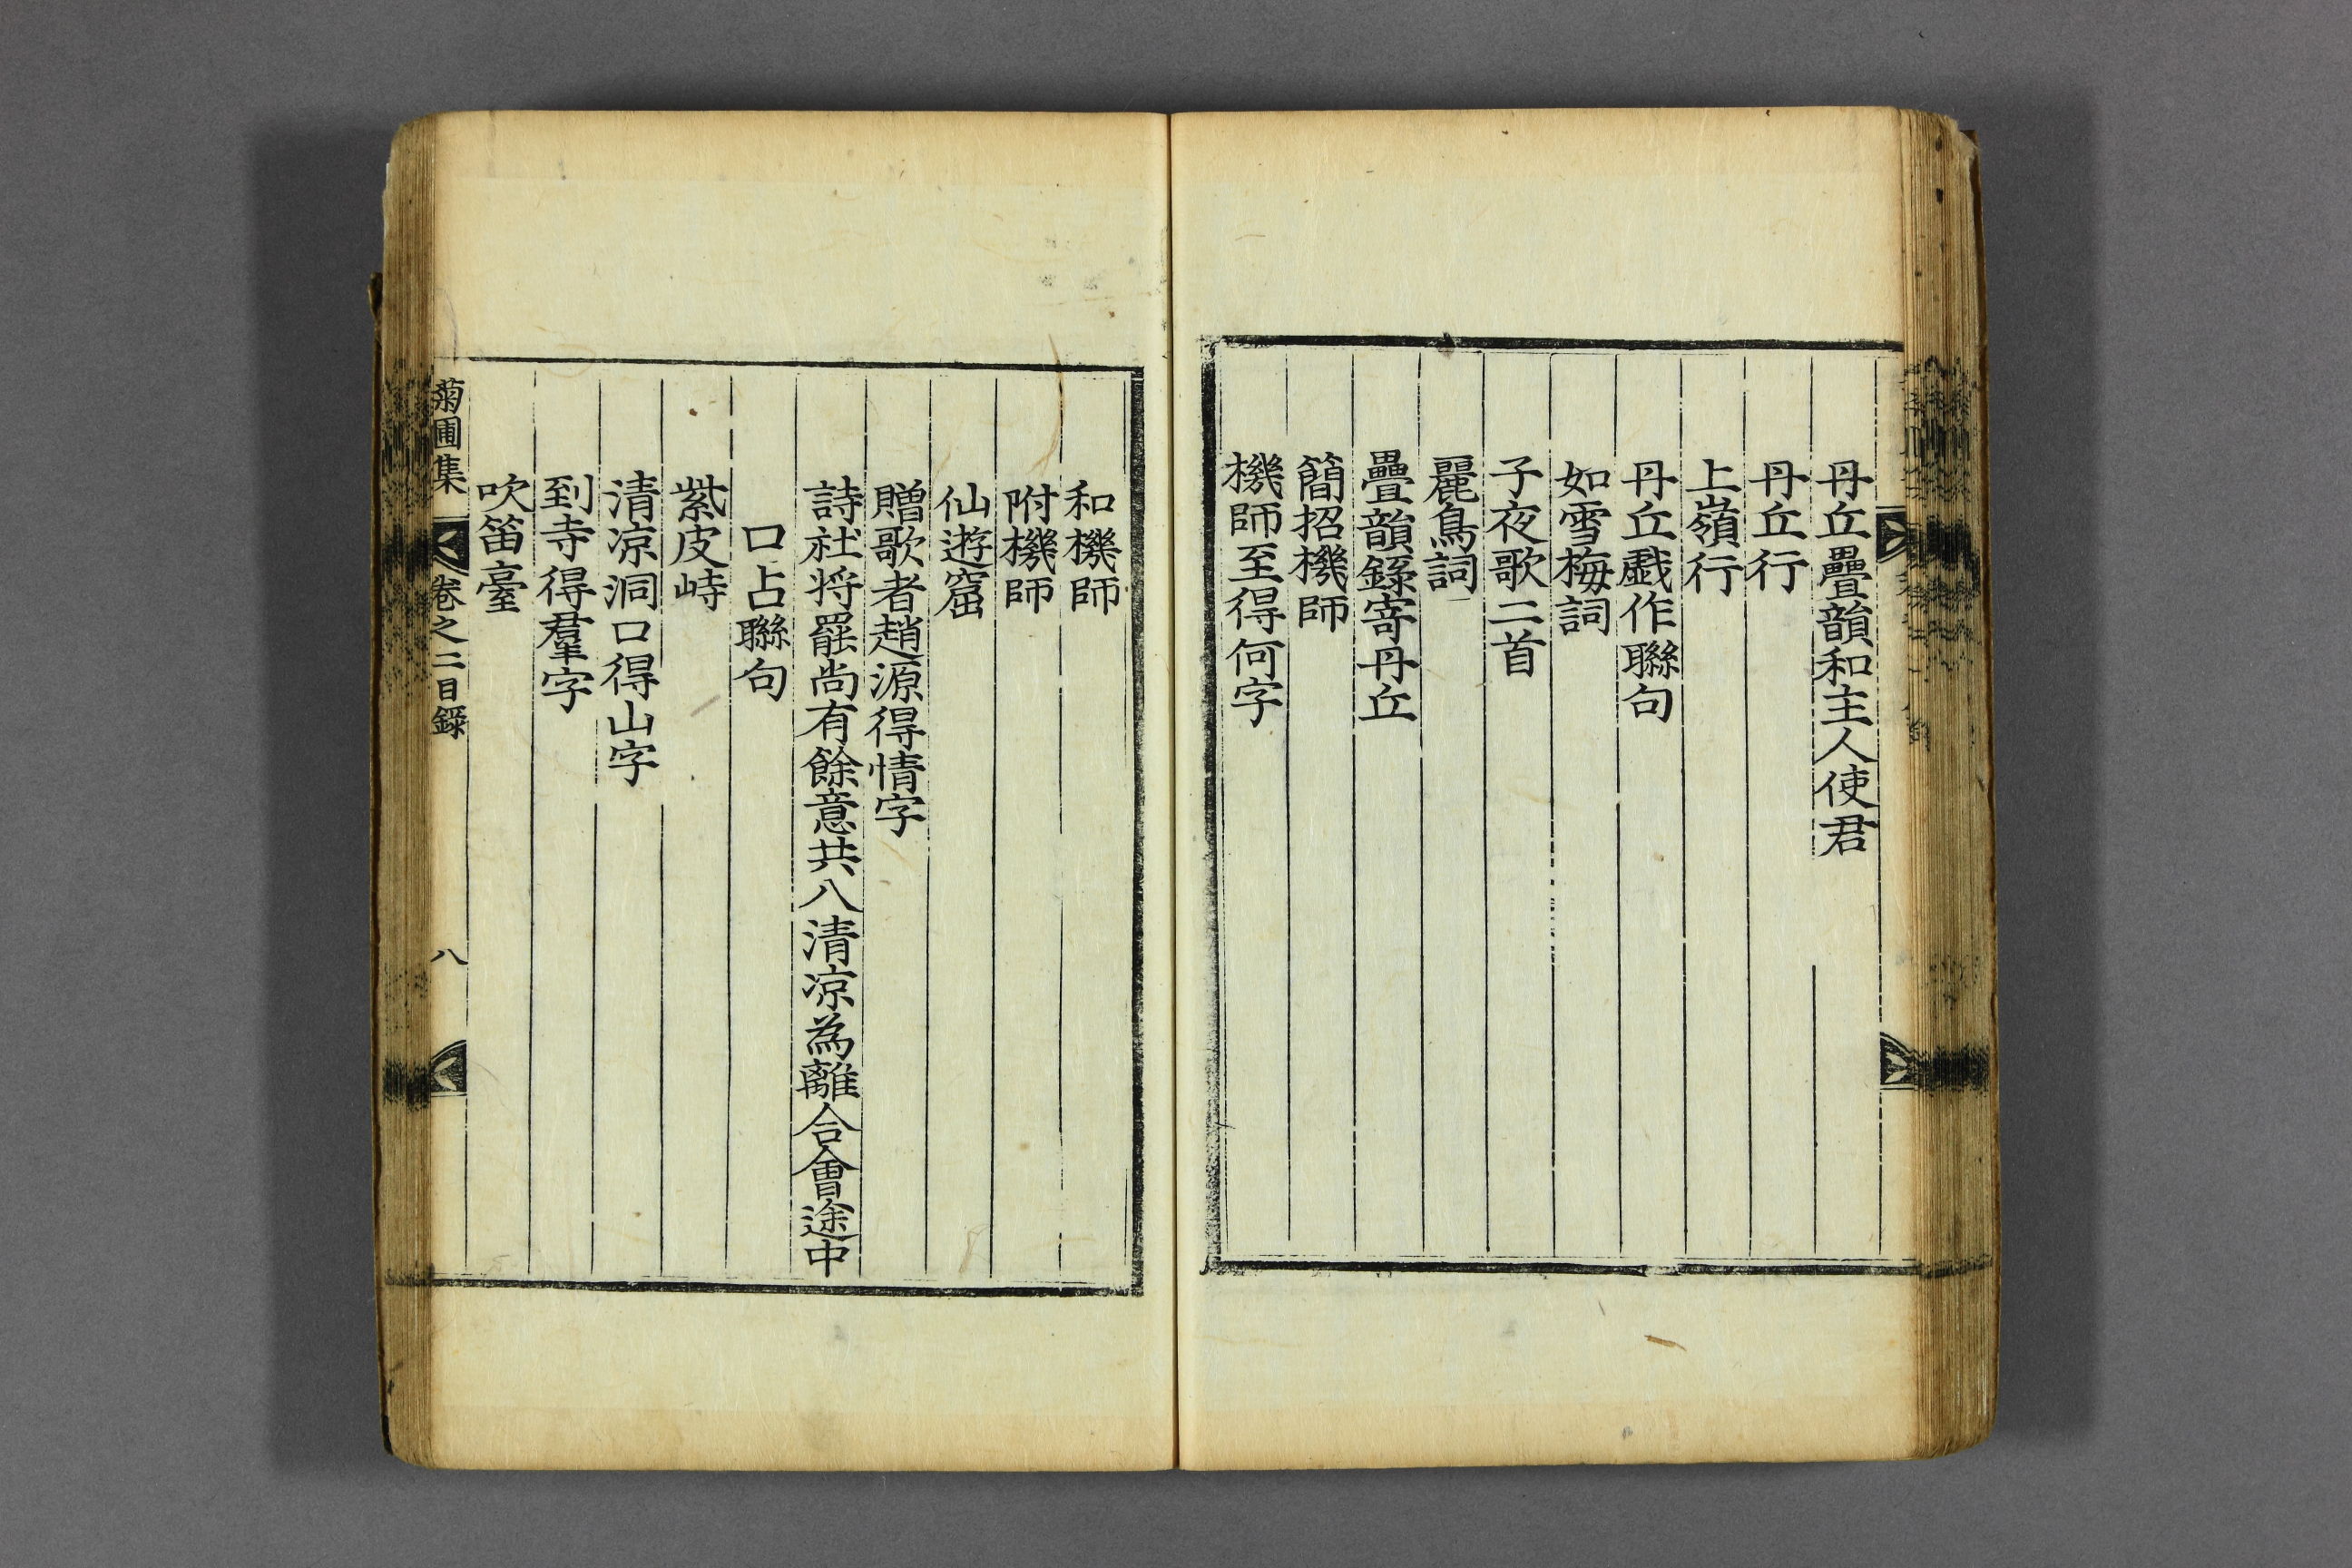 丹丘疊韻和主人使君
丹丘行
上嶺行
丹丘戱作聯句
如雪梅詞
子夜歌二首
麗鳥詞
疊韻錄寄丹丘
簡招機師
機師至得何字
和機師
附機師
仙遊窟
贈歌者趙源得情字
詩社將罷尚有餘意共入清凉為離合會途中
口占聯句
紫皮峙
清凉洞口得山字
到寺得羣字
吹笛臺
菊圃集 卷之二目錄 八